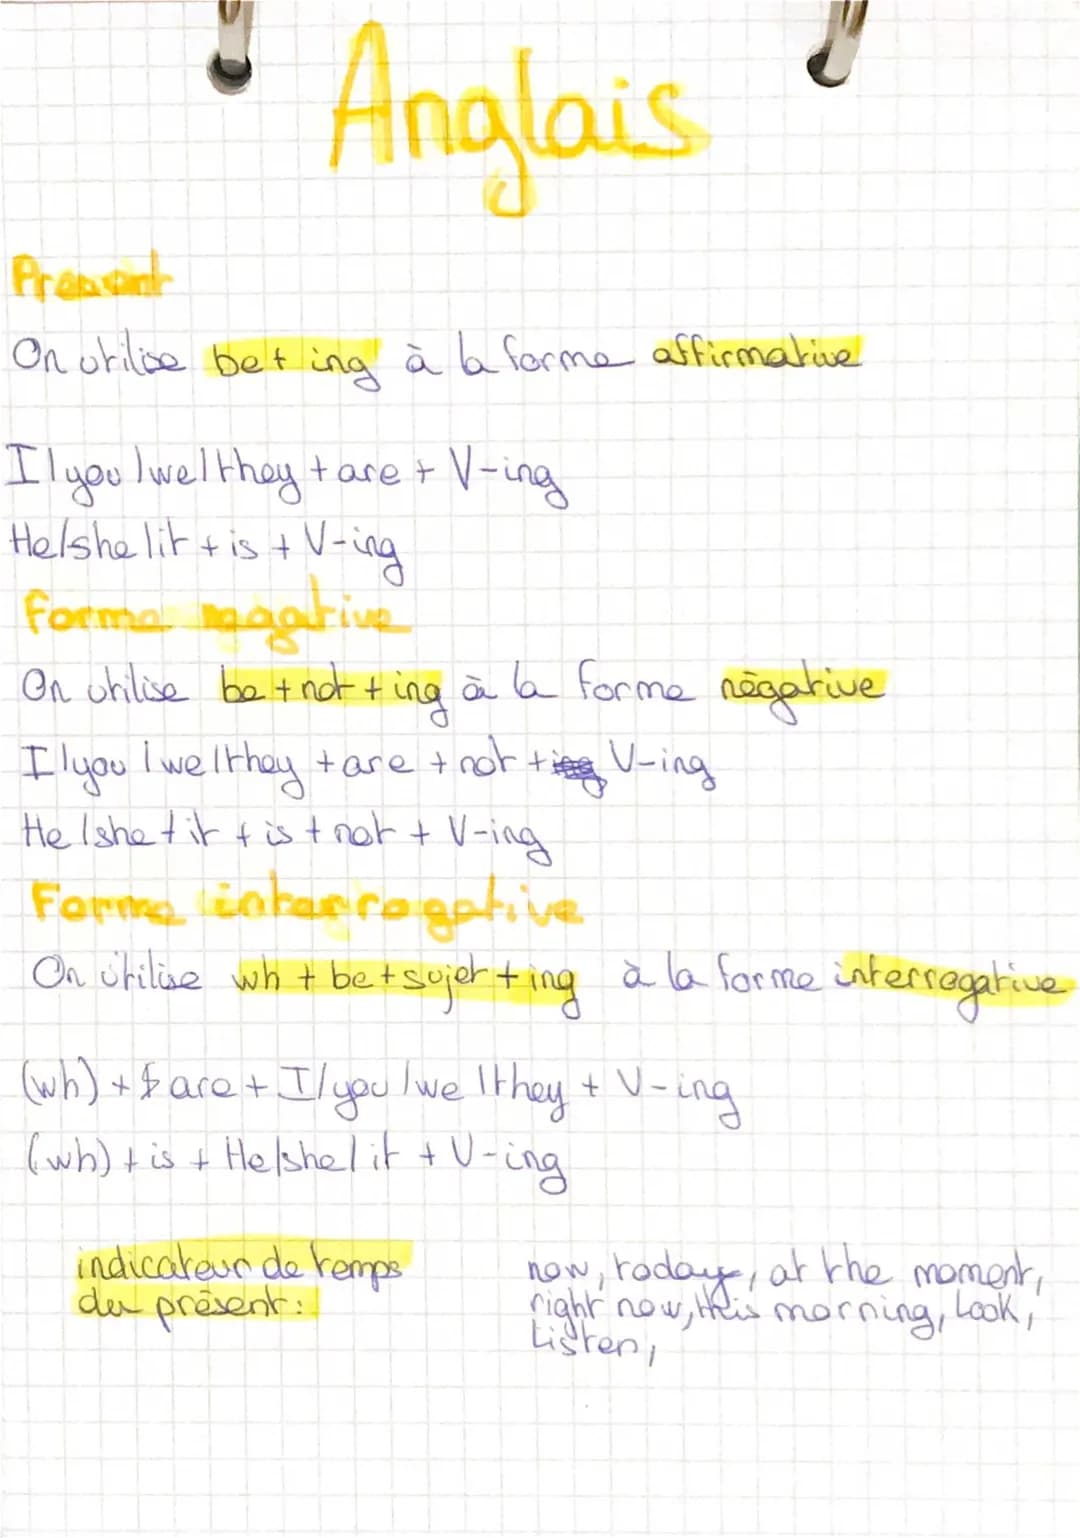 Anglais
Present
On utilise be+ ing à la forme affirmative
I/you/we/they + are + V-ing
He/she/it + is + V-ing
Forme négative
On utilise be + not + ing à la forme négative
I/you/we/they + are + not + V-ing
He/she+it + is + not + V-ing
Forme interrogative
On utilise wh + be + sujet + ing à la forme interrogative
(wh) + are + I/you/we/they + V-ing
(wh) + is + He/she/it + V-ing
indicateur de temps
du présent:
now, today, at the moment,
right now, this morning, Look,
Listen,